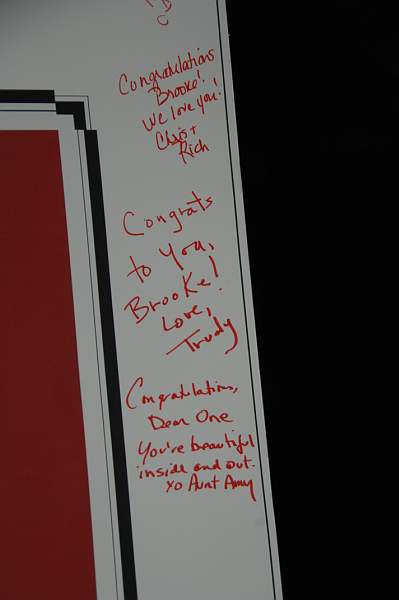 Congratulations
Brooke!
We love you!
Chris +
Rich
Congrats
to You,
Brooke!
Love,
Trudy
Congratulations,
Dear One
You're beautiful
inside and out.
xo Aunt Amy